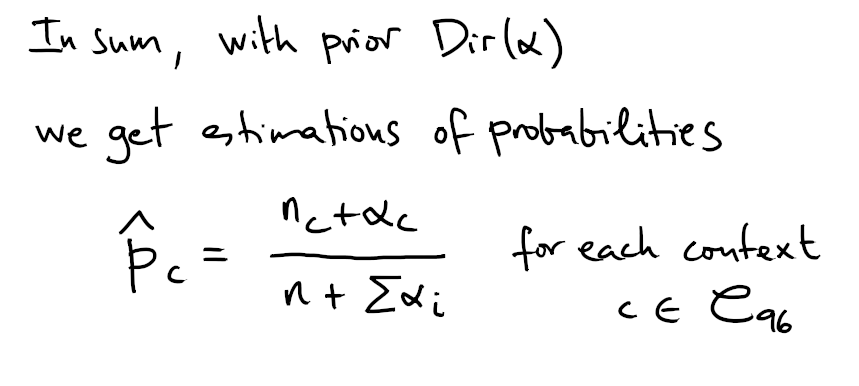 In sum, with prior Dir(α)
we get estimations of probabilities
p̂_c = (n_c + α_c) / (n + Σα_i) for each context
c ∈ 𝒞_96